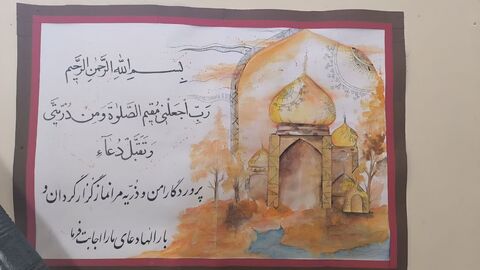 بِسمِ اللهِ الرَّحمٰنِ الرَّحیم
رَبِّ اجعَلنی مُقیمَ الصَّلوةِ وَمِن ذُرِّیَّتی
وَتَقَبَّل دُعَآءِ
پروردگارا من و ذریه مرا نماز گزار گردان و
بارالها دعای ما را اجابت فرما